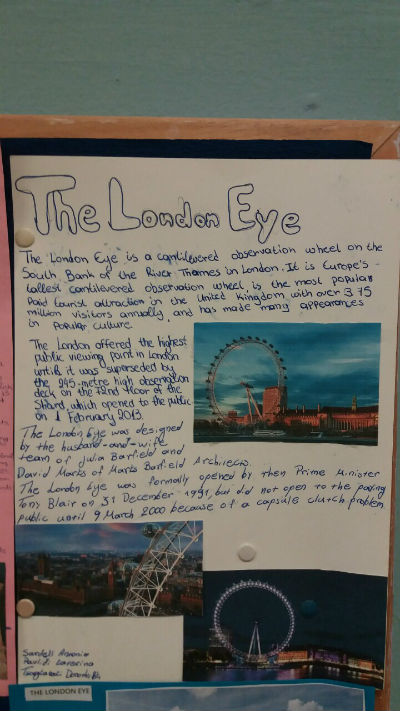 The London Eye
The London Eye is a cantilevered observation wheel on the
South Bank of the River Thames in London. It is Europe's
tallest cantilevered observation wheel, is the most popular
paid tourist attraction in the United Kingdom with over 3.75
million visitors annually, and has made many appearances
in popular culture.
The London offered the highest
public viewing point in London
until it was superseded by
the 245-metre high observation
deck on the 72nd floor of the
Shard, which opened to the public
on 1 February 2013.
The London Eye was designed
by the husband-and-wife
team of Julia Barfield and
David Marks of Marks Barfield Architects.
The London Eye was formally opened by then Prime Minister
Tony Blair on 31 December 1991, but did not open to the paying
public until 9 March 2000 because of a capsule clutch problem
THE LONDON EYE